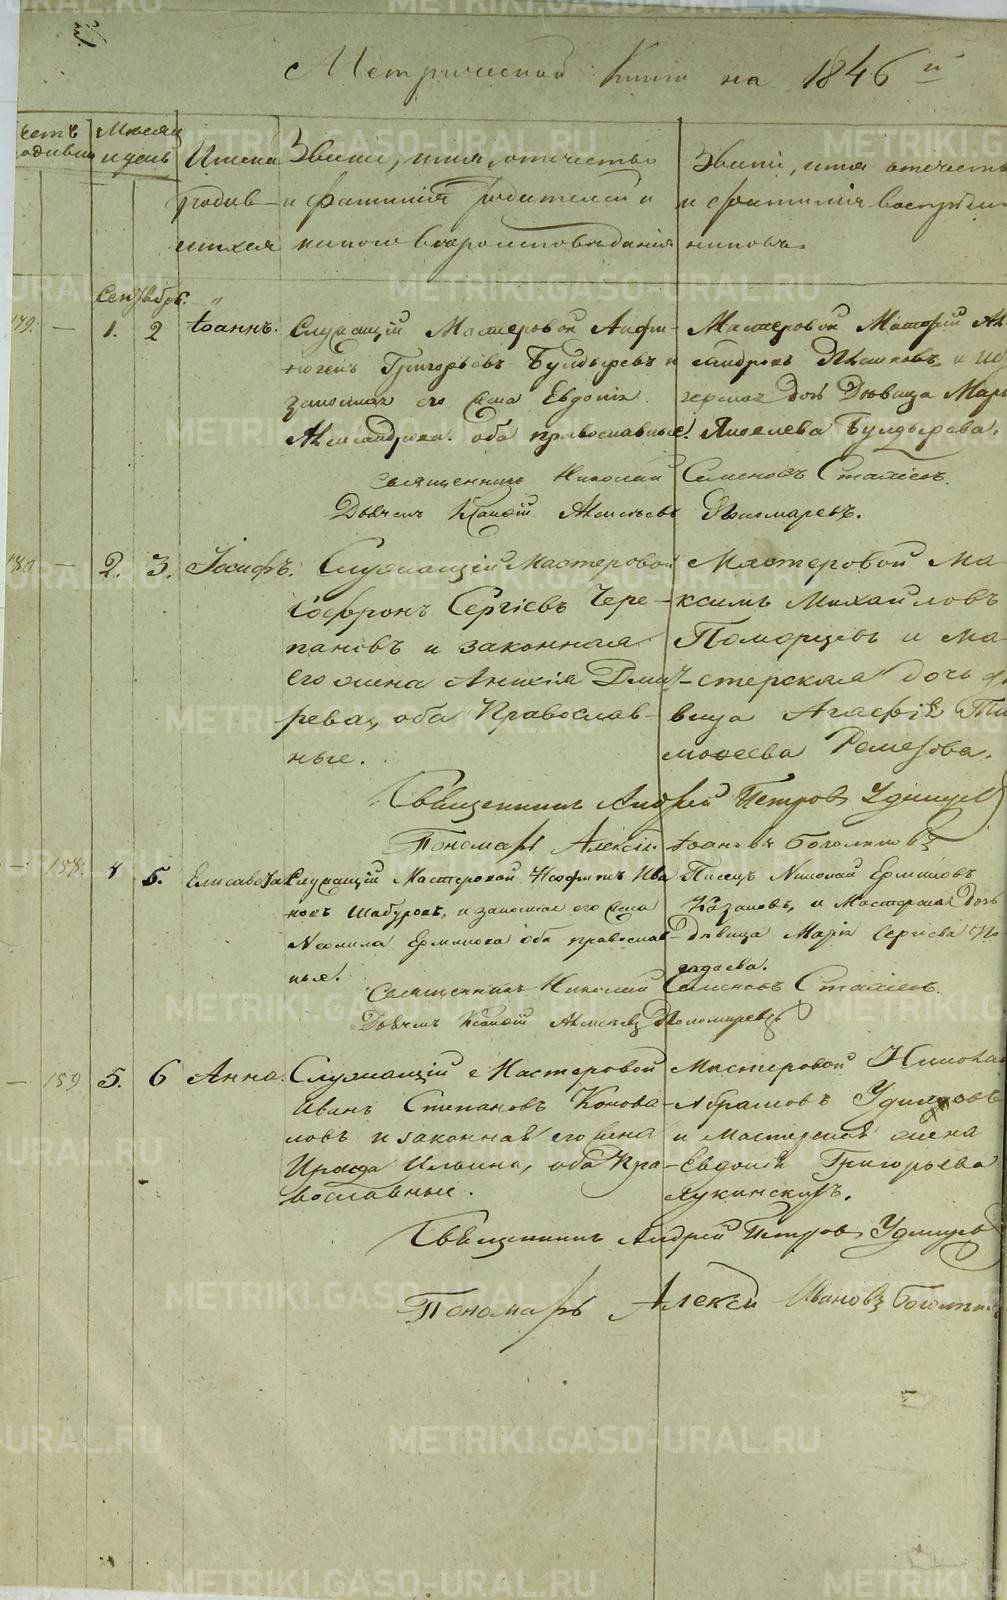 Метрической Книги на 1846й
Счетъ родивш
Мѣсяцъ и день
Имена родив-
шихся
Званіе, имя, отечество
и фамилія родителей и
какого вѣроисповѣданія
Званіе, имя отечеств
и фамилія воспріем-
никовъ.
Сентябрь.
179. — 1. 2 Іоаннъ.
Служащій Мастеровой
Григорьевъ Булдыревъ и
законная его жена Евдокія
Александрова. оба православные.
Мастеровой
и
дочь Дѣвица Марі
Яковлева Булдырева.
Священникъ Николай Семеновъ Стахіевъ.
Дьячекъ Алексѣевъ Пономаревъ.
180 — 2. 3. Іосифъ.
Служащій Мастеровой
Софронъ Сергіевъ Чере-
пановъ и законная
его жена Анисія Дмит-
рева, оба Православ-
ные.
Мастеровой Ма-
ксимъ Михайловъ
Поморцовъ и ма-
стерская дочь дѣ
вица Агафія Ти
моѳеева Ремезова.
Священникъ Андрей Петровъ Удинцев
Пономарь Алексѣй Іоановъ Боголеповъ
— 158. 4 5. Елисавета
Служащій Мастеровой Неофитъ Ива
новъ Шабуровъ, и законная его жена
Неонила Ермилова оба православ-
ные.
Писецъ Николай Ермиловъ
Казановъ, и Мастерская Дочь
дѣвица Марія Сергіева
Священникъ Николай Семеновъ Стахіевъ.
Дьячекъ Алексѣевъ Пономаревъ
— 159 5. 6 Анна.
Служащій Мастеровой
Иванъ Степановъ Конова-
ловъ и законная его жена
Ираида Ильина, оба Пра-
вославные.
Мастеровой Никола
Абрамовъ Удинцовъ
и Мастерская жена
Евдокія Григорьева
Лукинскихъ.
Священникъ Андрей Петровъ Удинцев
Пономарь Алексѣй Ивановъ Боголепов
METRIKI.GASO-URAL.RU